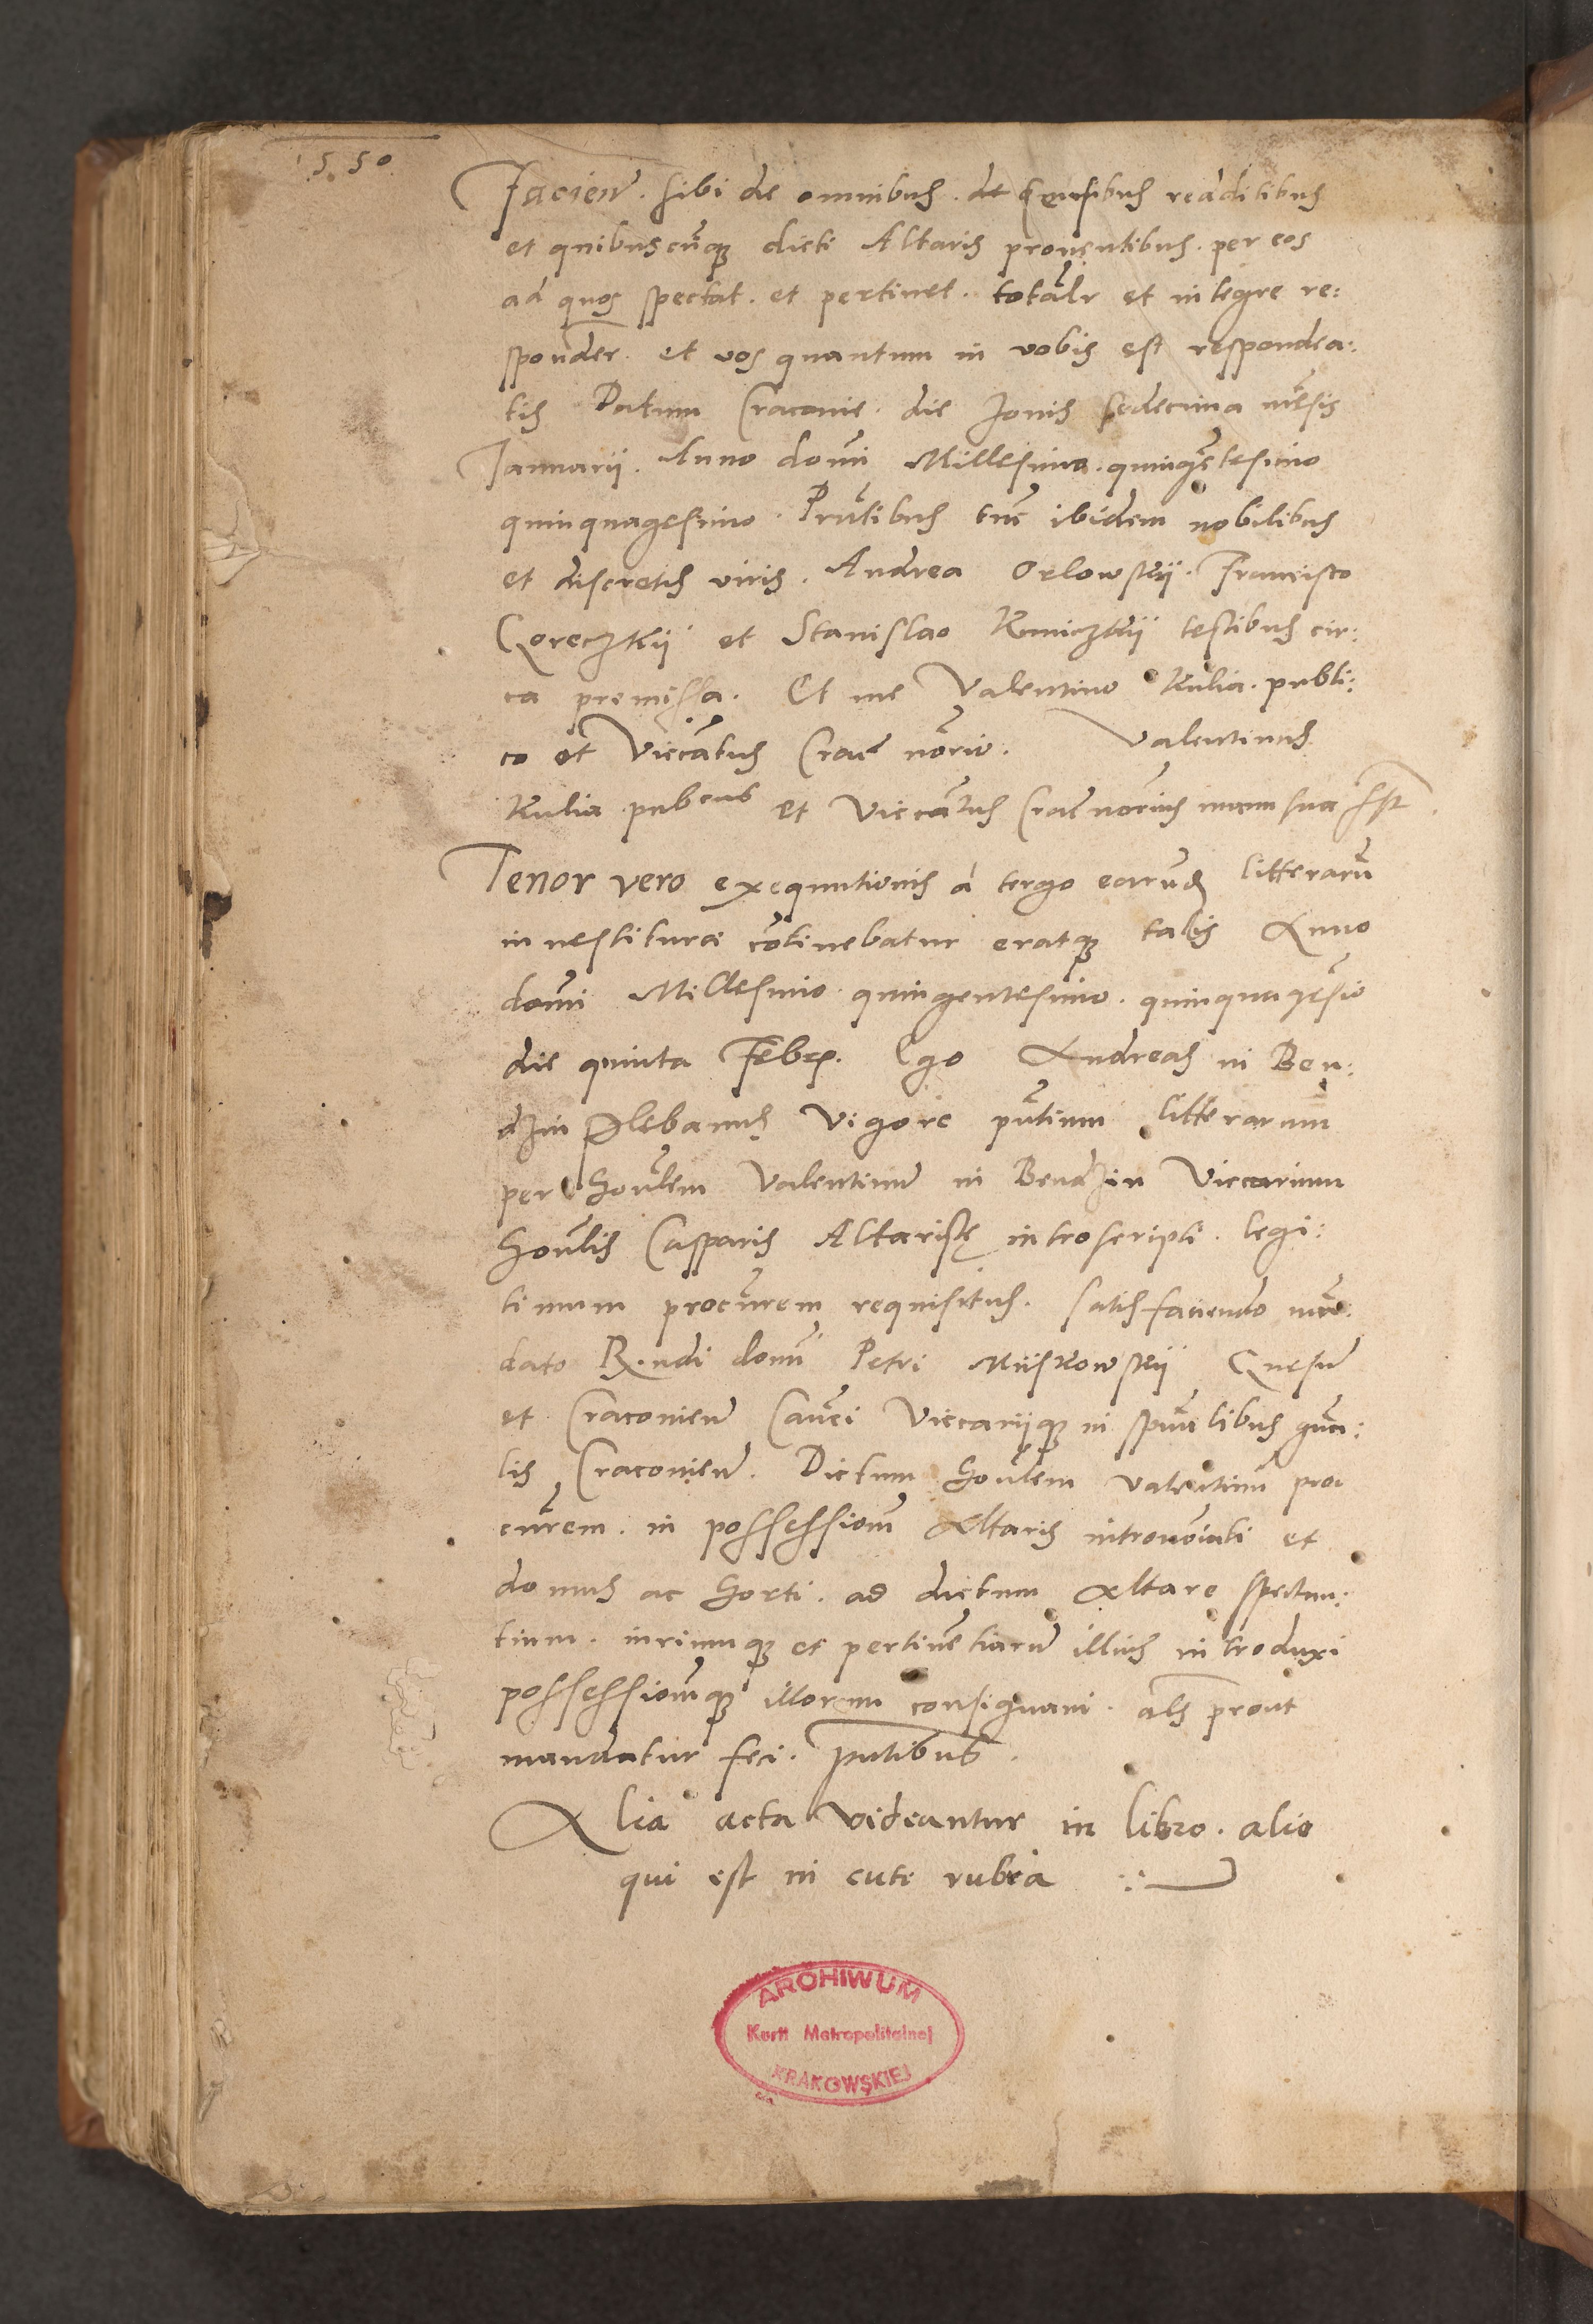 1550
Facien. sibi de omnibus. de Censibus readitibus
et quibuscūq; dicti Altaris prouentibus. per eos
ad quos spectat. et pertinet. totalr̃ et integre re:
sponder. et vos quantum in vobis est respondea:
tis Datum Cracouie. die Jouis sedecima mẽsis
Januarii. Anno domĩ Millesimo. quingẽtesimo
quinquagesimo. Prñtibus tũc ibidem nobilibus
et discretis viris. Andrea Orlowskij. Francisco
Goreczkij et Stanislao Koniczkij testibus cir:
ca premissa. Et me Valentino Kulia. publi:
co et Viccãtus Crac̃ nõrio. Valentinus
Kulia pubcus et Viccãtus Crac̃ nõrius manu sua sst
Tenor vero exequutionis a tergo earũd litterarũ
inuestiturae cõtinebatur eratq; talis Anno
domĩ Millesimo quingentesimo. quinquagẽsio
die quinta Febr. Ego Andreas in Ben:
dzin Plebanus Vigore pñtium litterarum
per Honlem Valentinũ in Bendzin Viccarium
Honlis Casparis Altaristę introscripti. legi:
timum procũrem requisitus. satisfaciendo mã:
dato R.ndi domĩ Petri Miskowskij Gnesñ
et Cracouien Canci Viccarijq; in spũalibus gñа:
lis Cracouien. Dictum Honlem Valentinũ pro
cũrem. in possessionẽ Altaris intronõiati et
domus ac horti. ad dictum Altare spectan:
tium. iuriumq; et pertinẽtiarũ illius introduxi
possessionẽq; illorum consignaui. als prout
mandatur feci. pñtibus.
Alia acta Videantur in libro. alio
qui est in cute rubea
ARCHIWUM
Kurii Metropolitalnej
KRAKOWSKIEJ